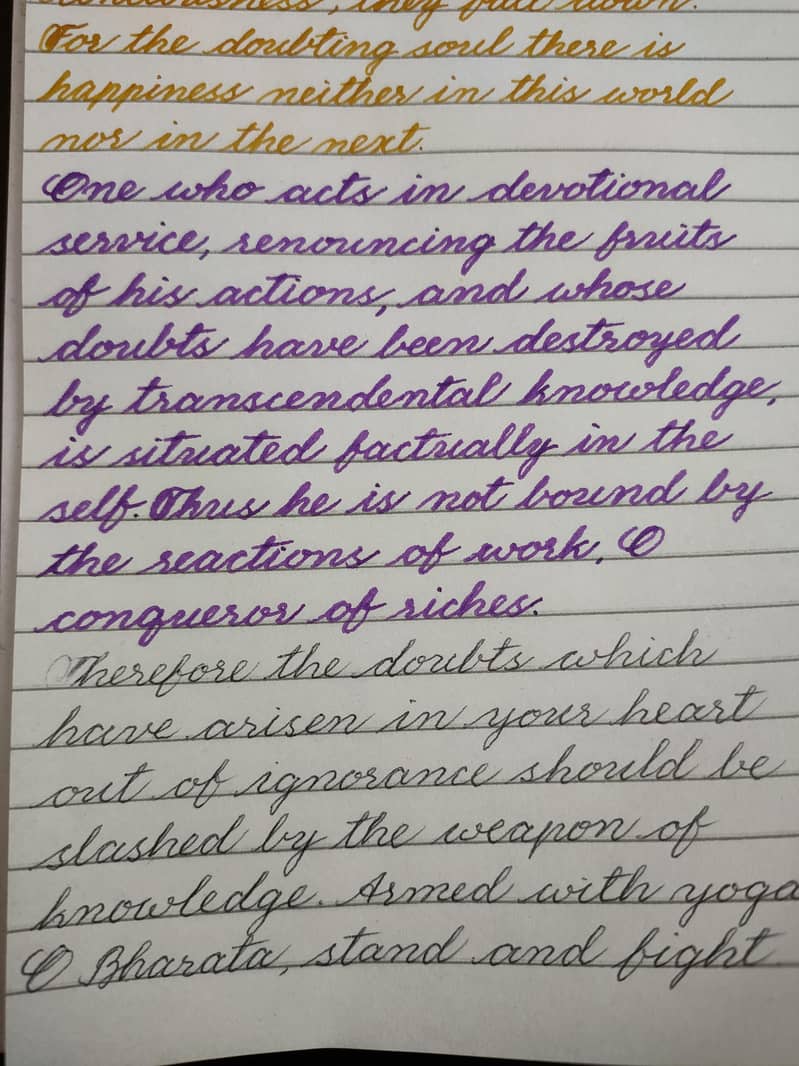 they fall down.
For the doubting soul there is
happiness neither in this world
nor in the next.
One who acts in devotional
service, renouncing the fruits
of his actions, and whose
doubts have been destroyed
by transcendental knowledge,
is situated factually in the
self. Thus he is not bound by
the reactions of work, O
conqueror of riches.
Therefore the doubts which
have arisen in your heart
out of ignorance should be
slashed by the weapon of
knowledge. Armed with yoga
O Bharata, stand and fight